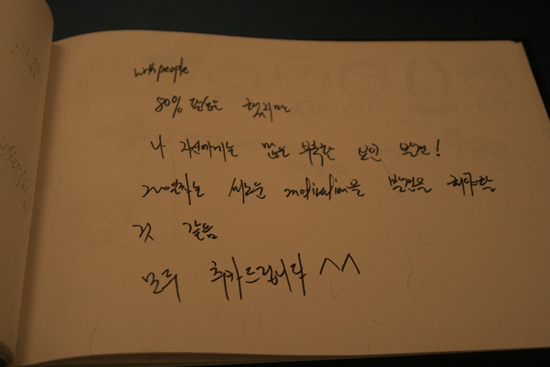 with people
80% 달성은 했지만
나 자신에게는 많은 부족한 보인 부분!
새로운 motivation을 발견을 해야할
것 같음
모두 축하드립니다 ^^